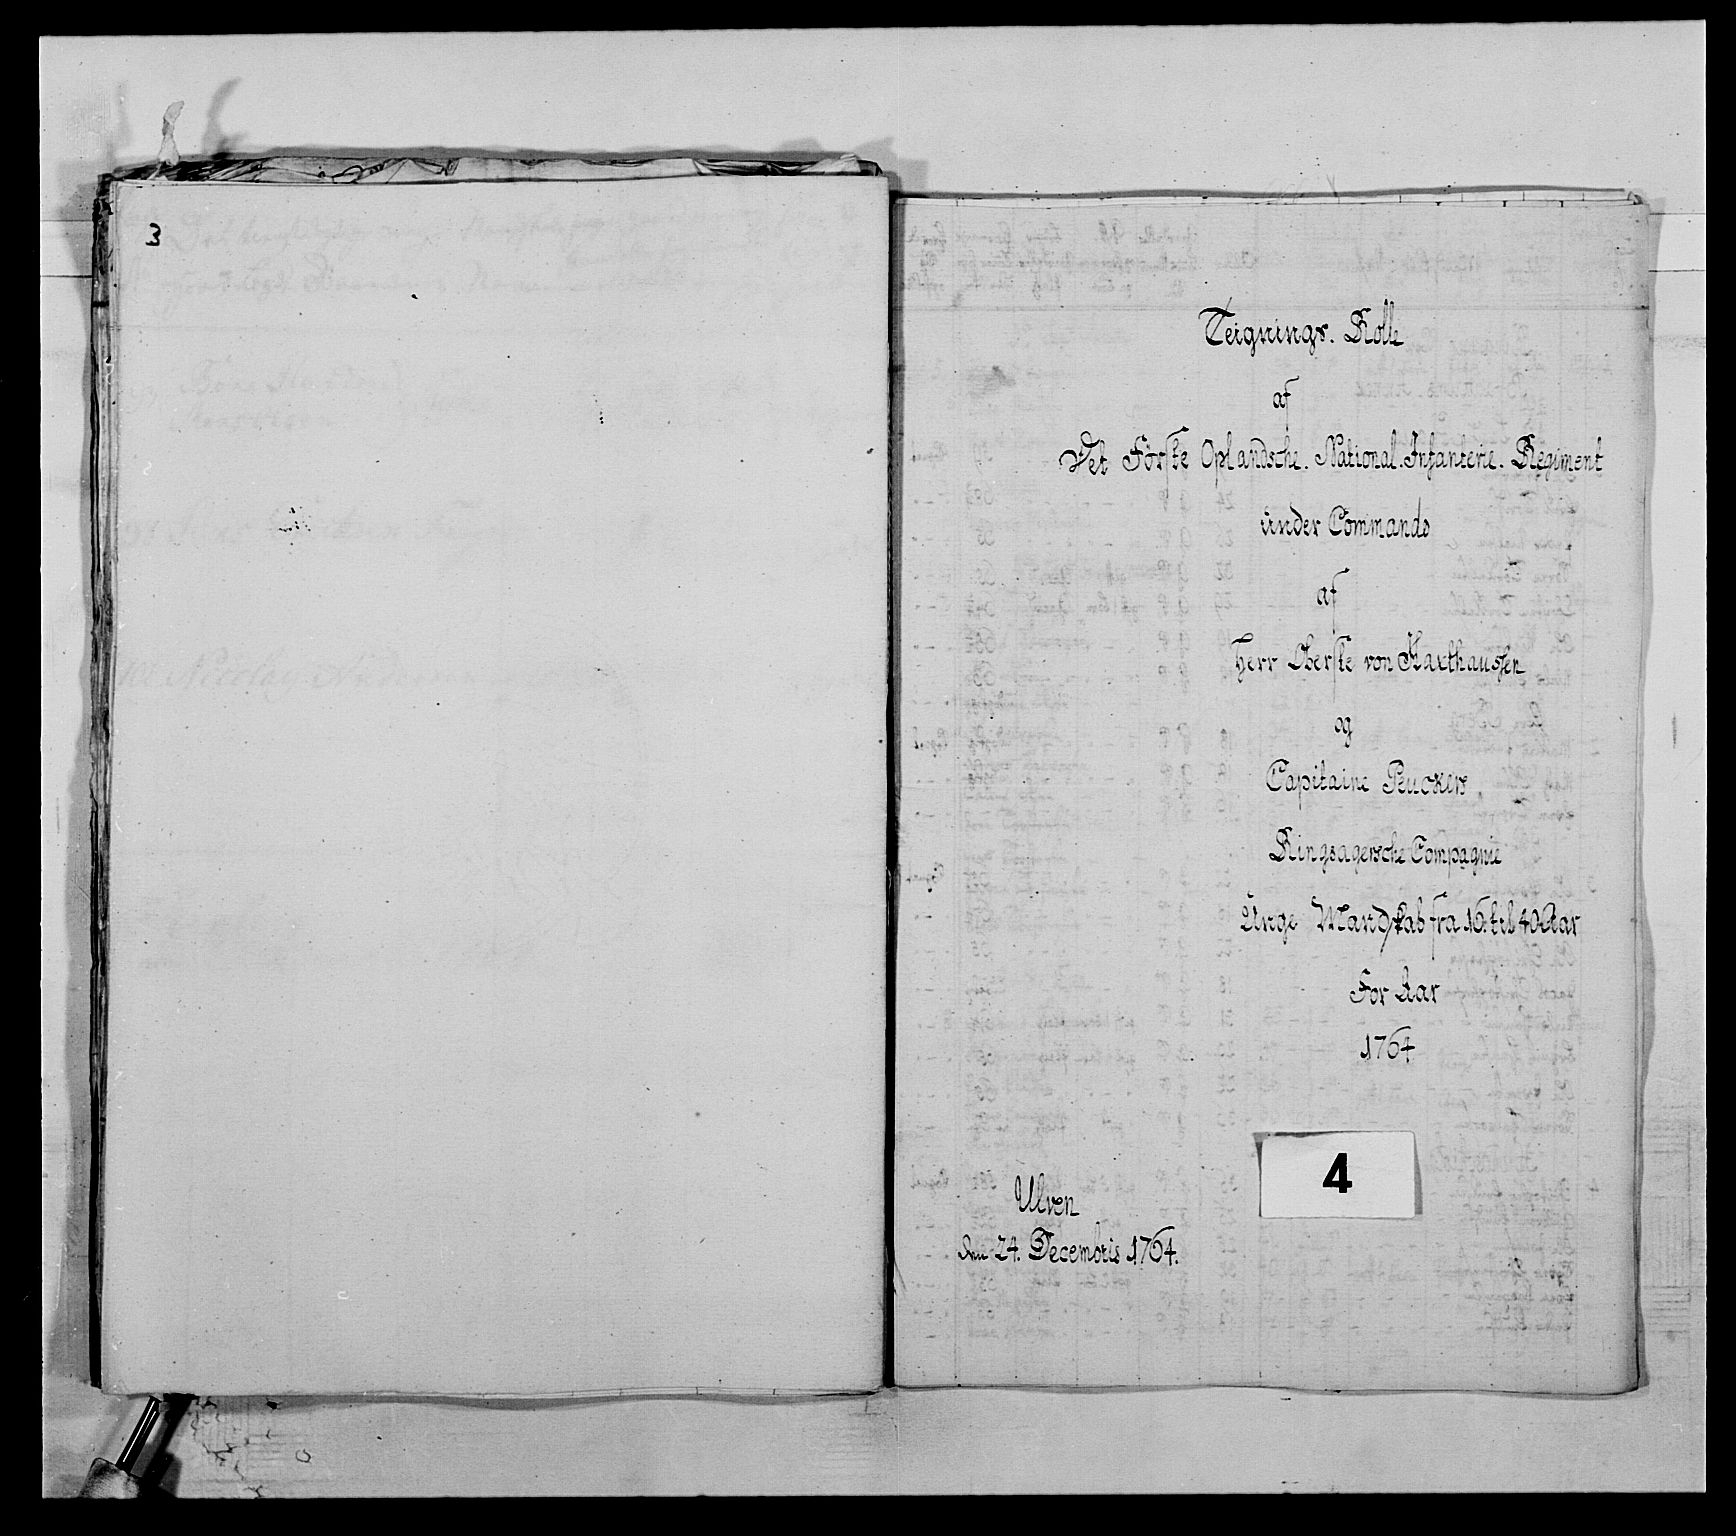 3
Teignings. Rolle
af
Det Förste Oplandsche. National. Infanterie. Regiment
under Commando
af
Herr Oberste von Haxthaussen
og
Capitaine Peuckers
Ringsagersche Compagnie
Unge Mandskab fra 16. til 40 Aar
For Aar
1764
4
Ulven
den 24. Decembris 1764.